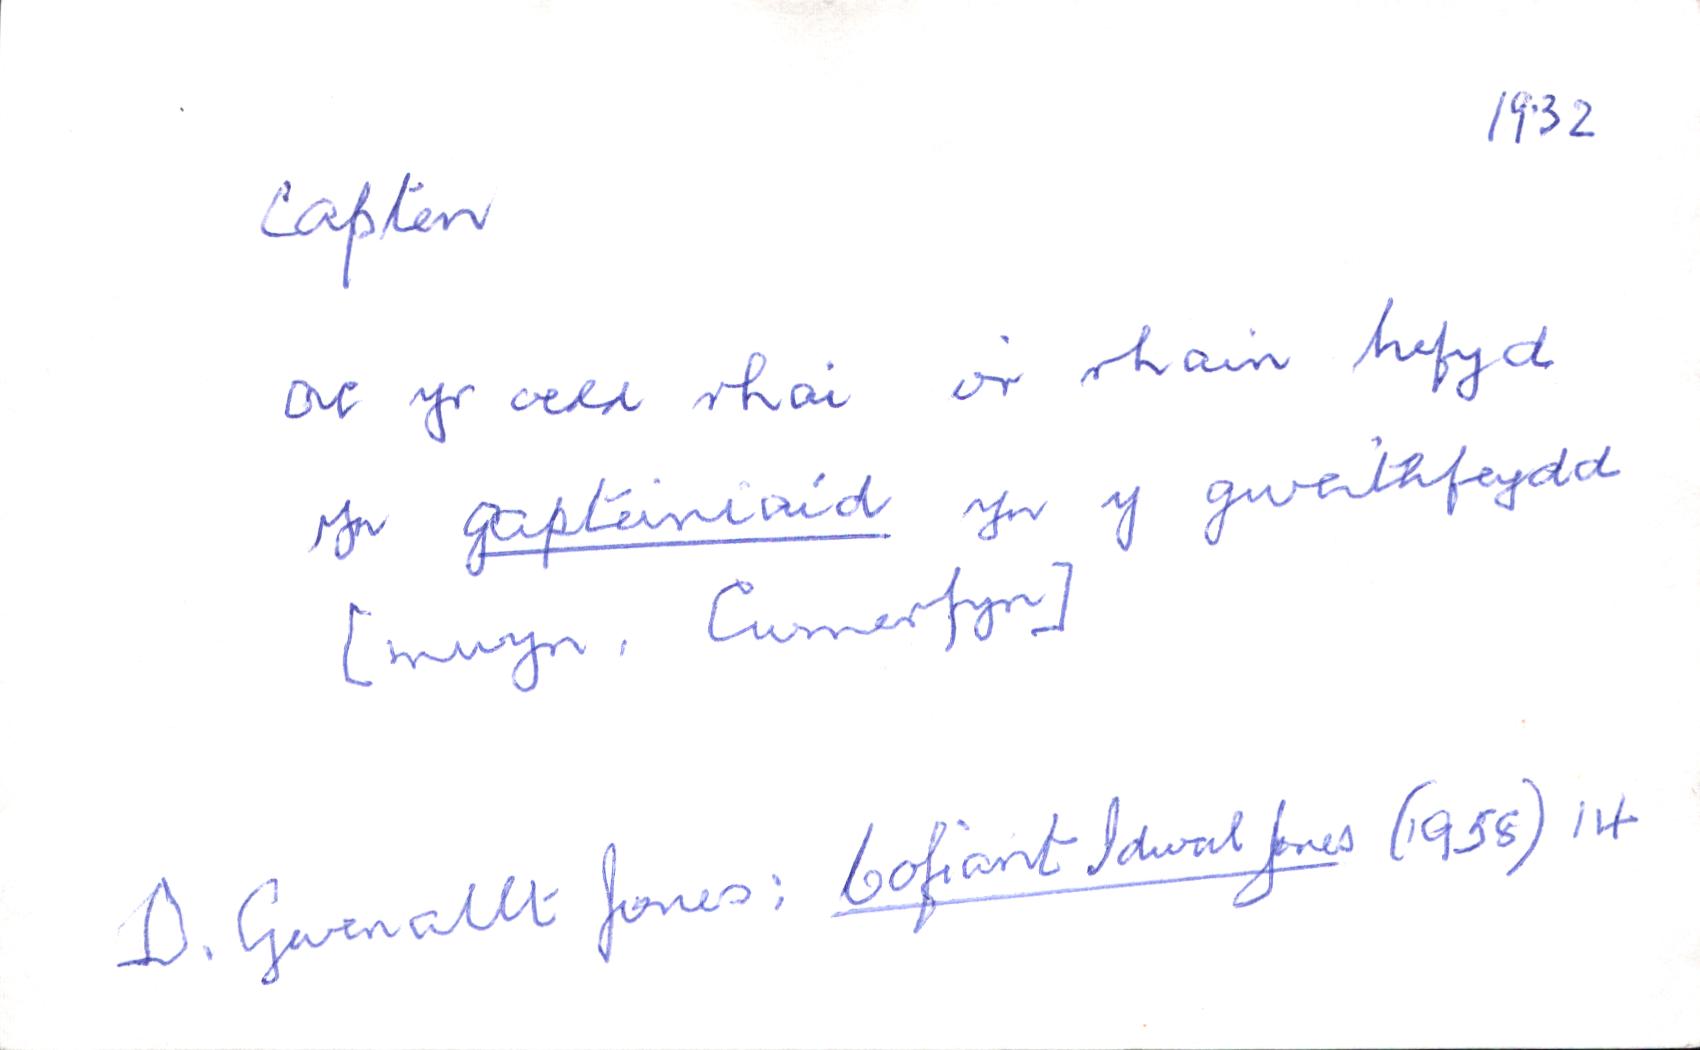 1932
Capten
ac yr oedd rhai o'r rhain hefyd
yn gapteiniaid yn y gweithfeydd
[mwyn, Cwmerfyn]
D. Gwenallt Jones: Cofiant Idwal Jones (1958) 14